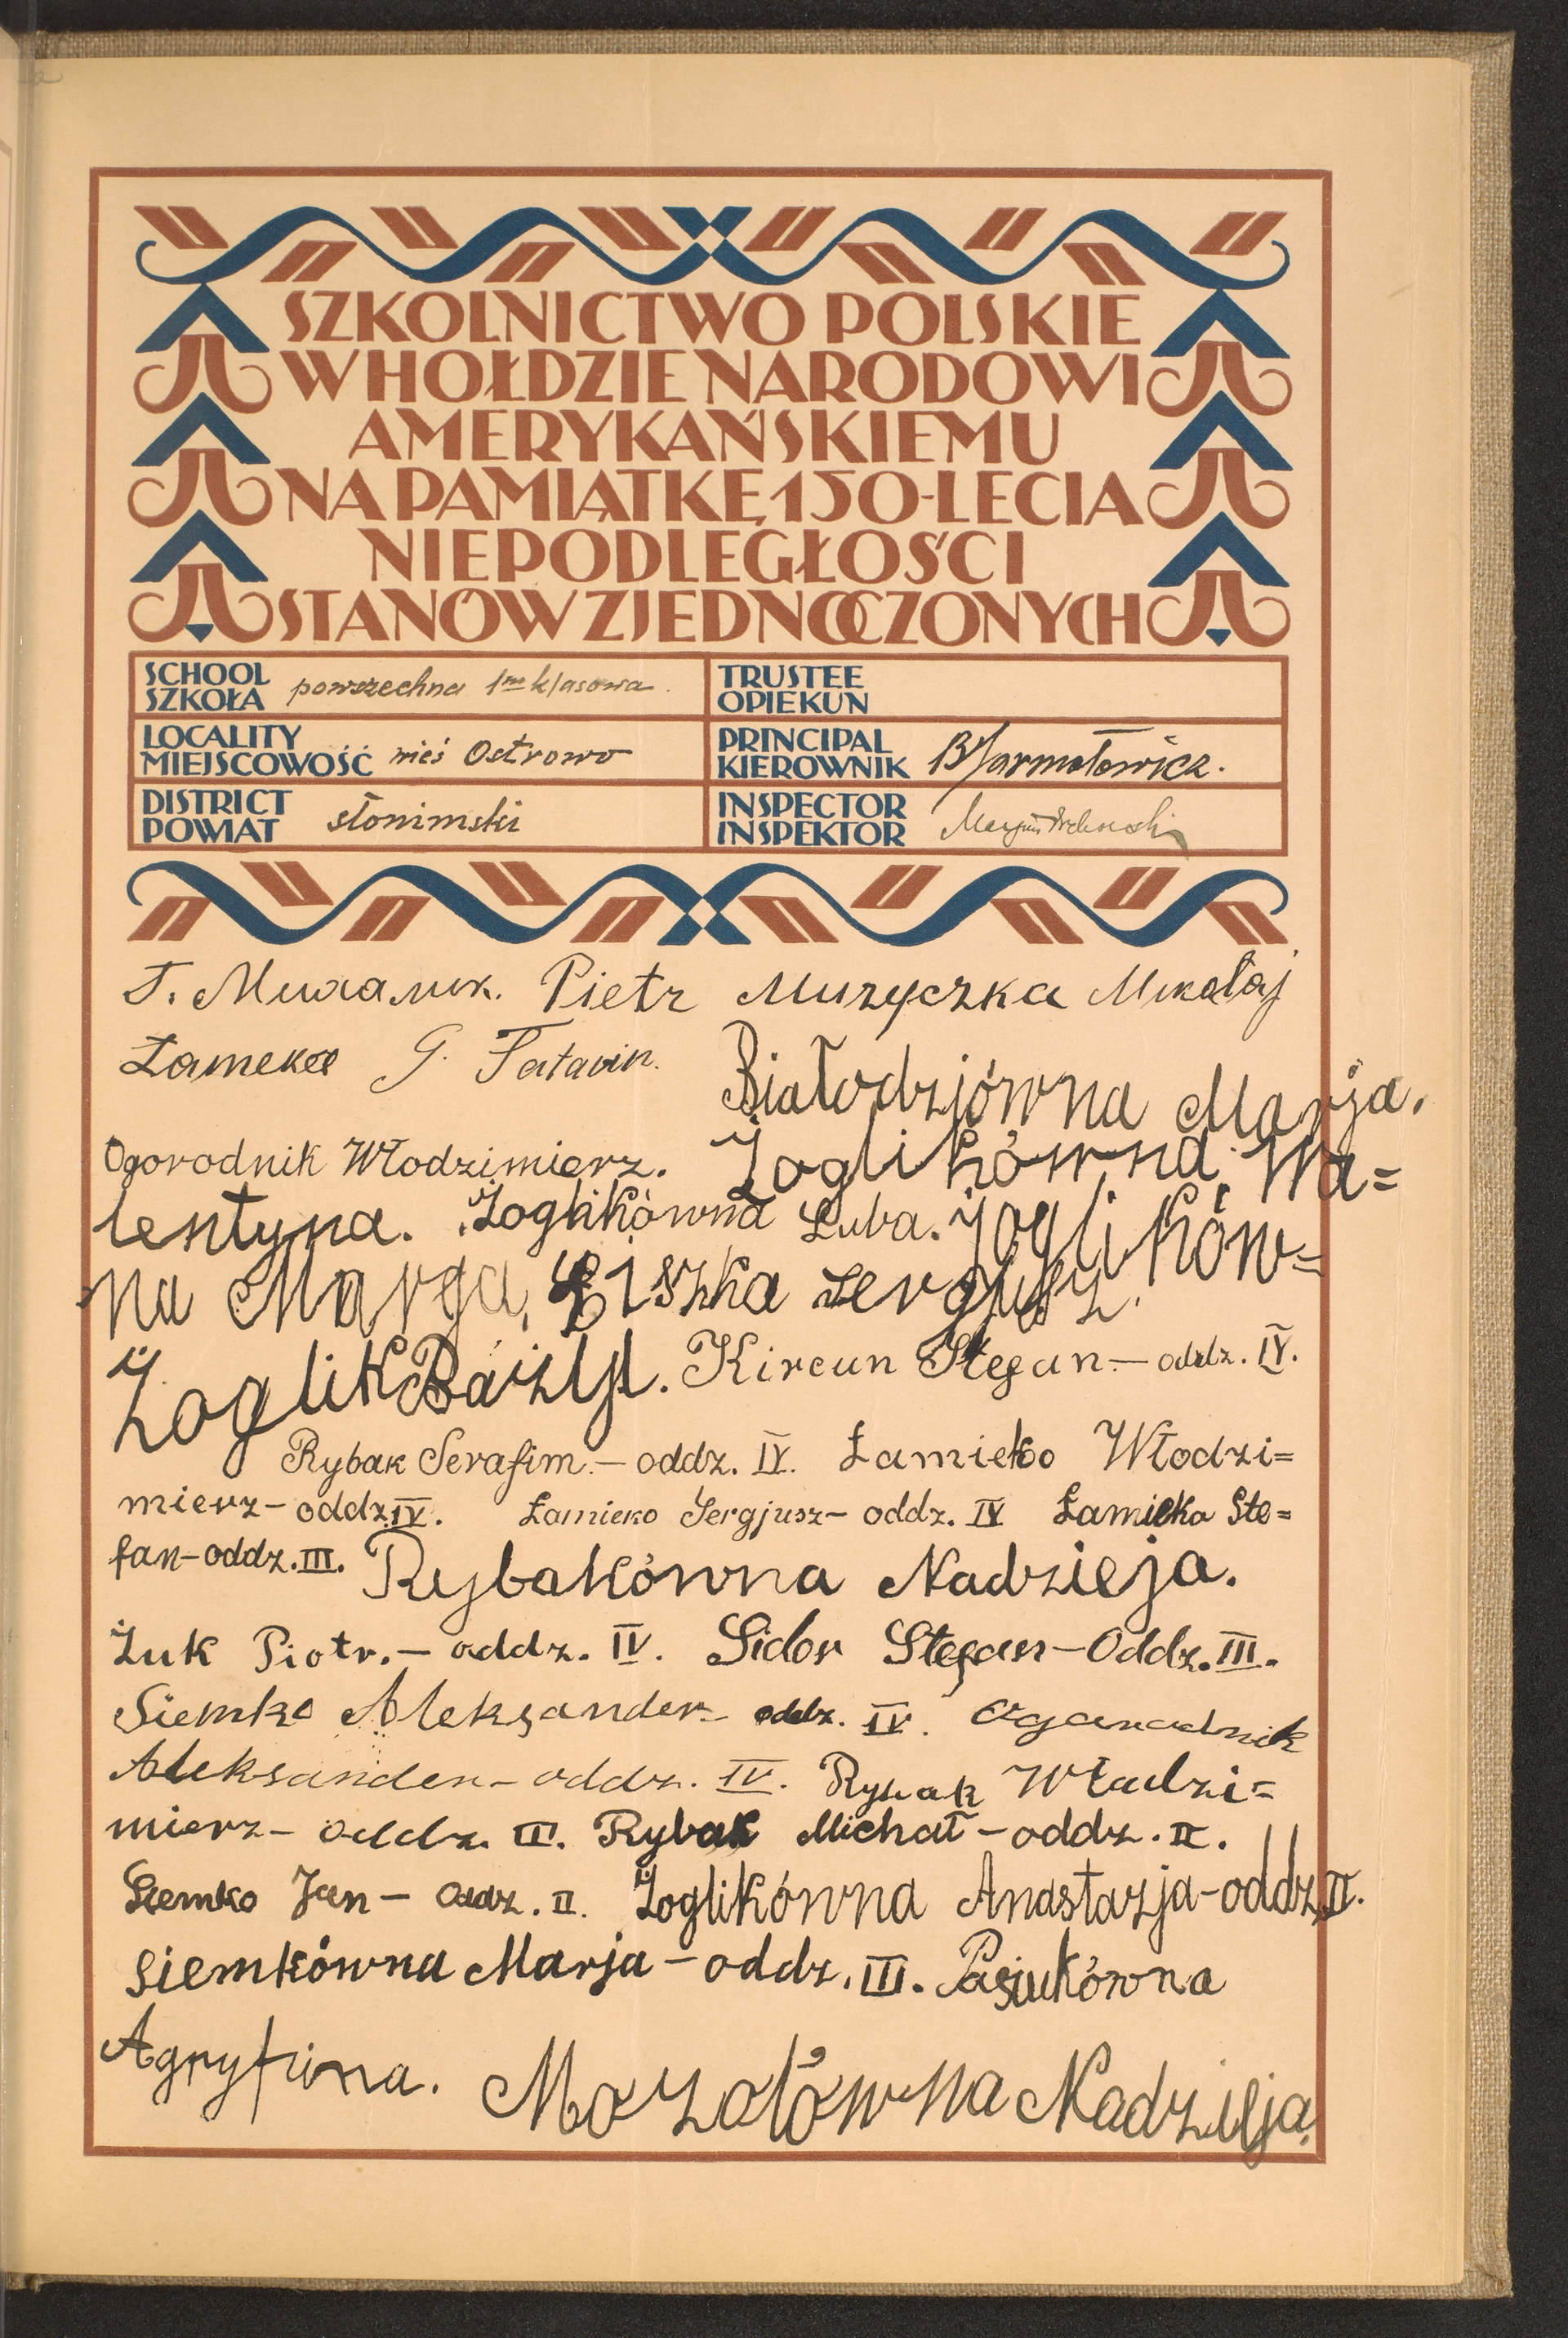 SZKOLNICTWO POLSKIE
W HOŁDZIE NARODOWI
AMERYKAŃSKIEMU
NA PAMIĄTKĘ 150-LECIA
NIEPODLEGŁOŚCI
STANÓW ZJEDNOCZONYCH
SCHOOL
SZKOŁA powszechna 1no klasowa
TRUSTEE
OPIEKUN
LOCALITY
MIEJSCOWOŚĆ wieś Ostrowo
PRINCIPAL
KIEROWNIK B Jarmołowicz.
DISTRICT
POWIAT słonimski
INSPECTOR
INSPEKTOR
Pietr Muzyczka Mikołaj
Białodzjówna Marja.
Ogorodnik Włodzimierz. Żoglikówna Wa=
lentyna. Żoglikówna Luba. Żoglików=
na Marga, Liszka Sergjusz.
Żoglik Bazyl. Kircun Stefan. — oddz. IV.
Rybak Serafim. — oddz. IV. Łamieko Włodzi=
mierz — oddz. IV. Łamieko Sergjusz — oddz. IV Łamieka Ste=
fan — oddz. III. Rybakówna Nadzieja.
Żuk Piotr. — oddz. IV. Sidor Stefan — Oddz. III.
Siemko Aleksander — oddz. IV. Ogarodnik
Aleksander — oddz. IV. Rybak Władzi=
mierz — oddz. II. Rybak Michał — oddz. II.
Siemko Jan — Oddz. II. Żoglikówna Anastazja — oddz. II.
Siemkówna Marja — oddz. III. Pasiukówna
Agryfina. Mozolówna Nadzieja.